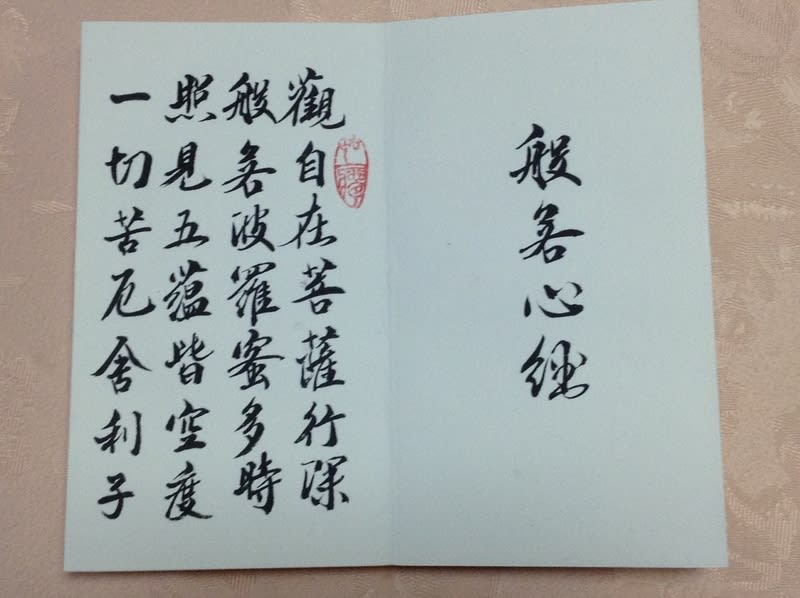 般若心經
觀自在菩薩行深
般若波羅蜜多時
照見五蘊皆空度
一切苦厄舍利子